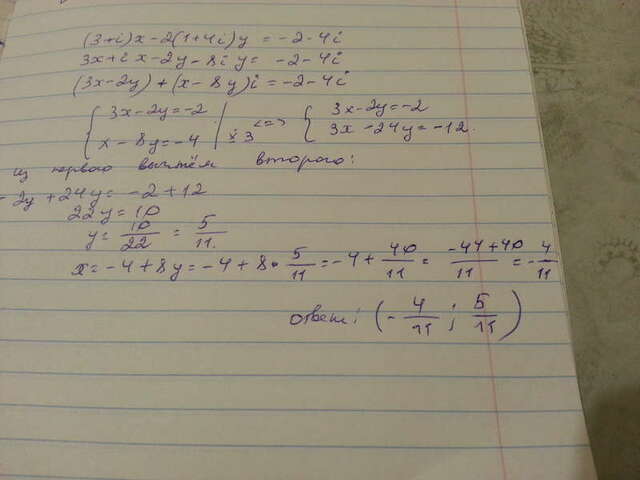 (3+i)x-2(1+4i)y=-2-4i
3x+ix-2y-8iy=-2-4i
(3x-2y)+(x-8y)i=-2-4i
{3x-2y=-2 | <=> {3x-2y=-2
x-8y=-4 | x3 3x-24y=-12.
из первого вычтем второго:
-2y+24y=-2+12
22y=10
y=10/22=5/11.
x=-4+8y=-4+8•5/11=-4+40/11=-44+40/11=-4/11
ответ: (-4/11; 5/11)